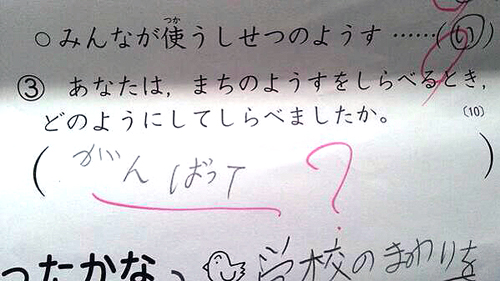 ○みんなが使うしせつのようす……(い)
つか
③ あなたは，まちのようすをしらべるとき，
どのようにしてしらべましたか。
(10)
(がんばって)
?
ったかな、
学校のまわりを